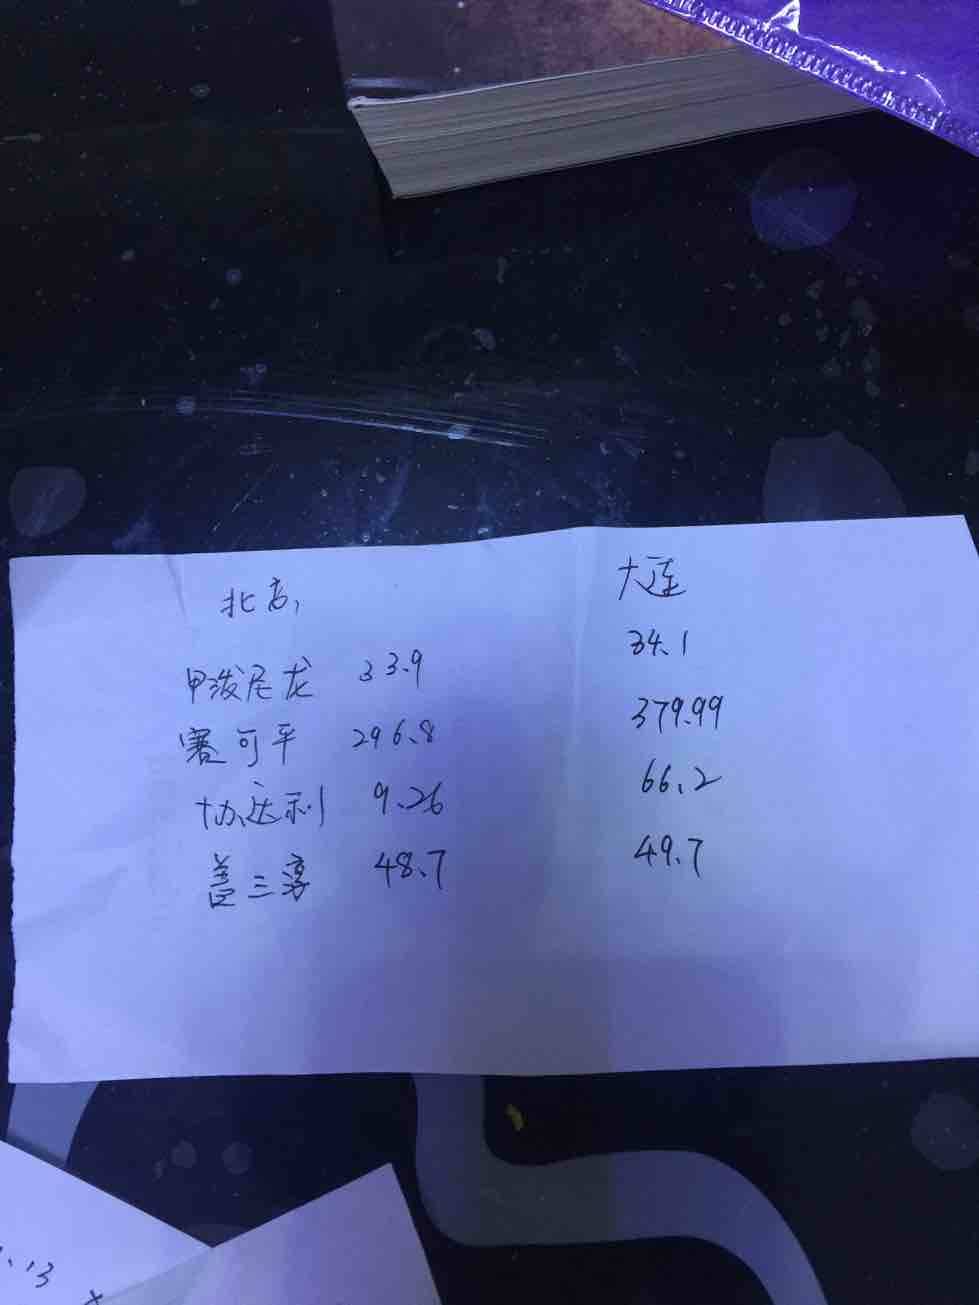 北京, 大连
甲泼尼龙 33.9 34.1
赛可平 296.8 379.99
协达利 9.26 66.2
盖三淳 48.7 49.7
.13